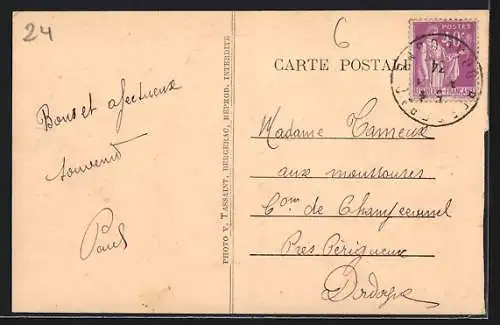 24
6
CARTE POSTALE
Bons et afectueux
souvenir
Paul
PHOTO V. TASSAINT, BERGERAC, REPROD. INTERDITE
POSTES
Madame
aux
Con de Champcevinel
Près Périgueux
Dordogne